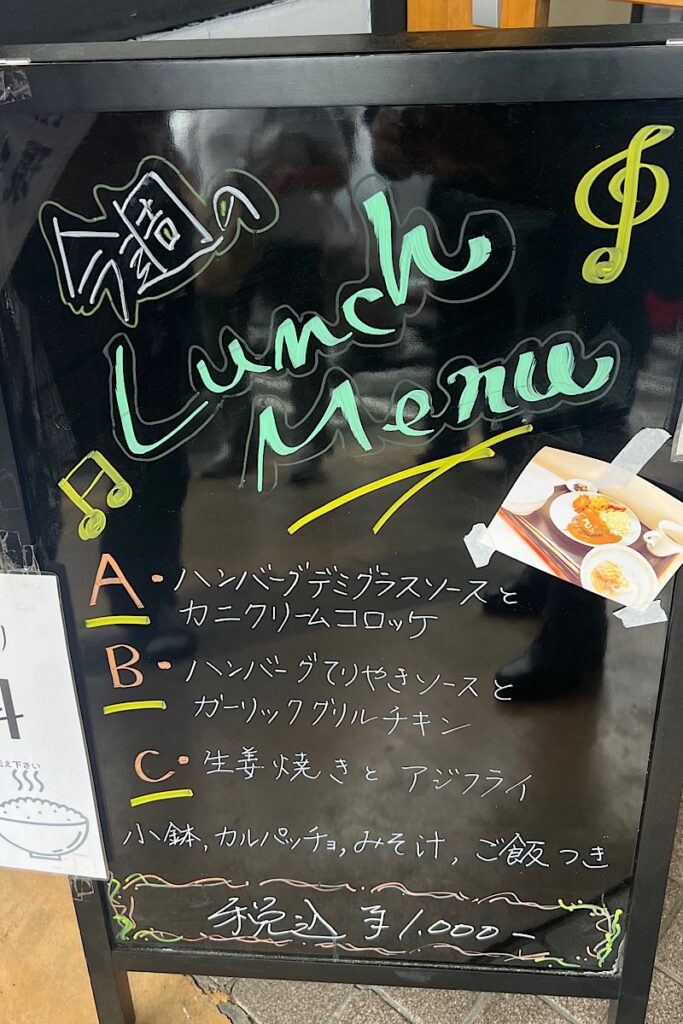 今週の
Lunch
Menu
A・ハンバーグデミグラスソースと
カニクリームコロッケ
B・ハンバーグてりやきソースと
ガーリックグリルチキン
C・生姜焼きと アジフライ
小鉢,カルパッチョ,みそ汁,ご飯つき
税込 ¥1.000-
り
料
え下さい